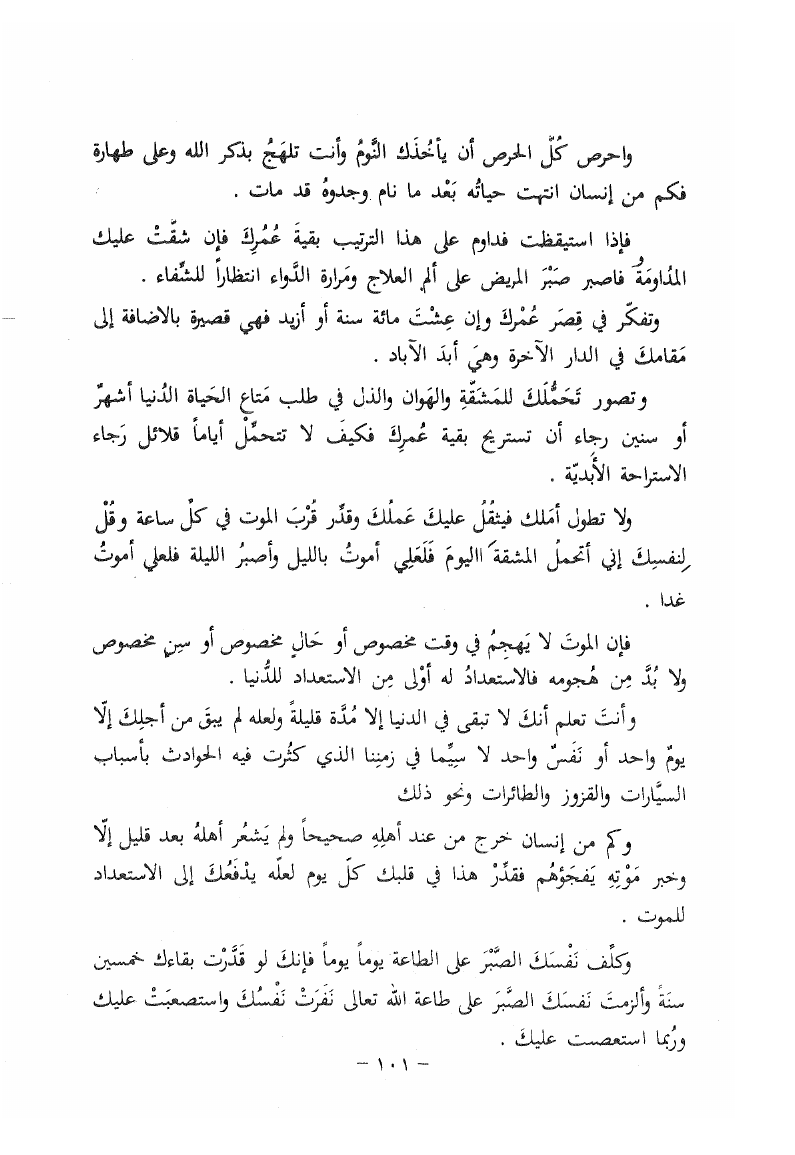 واحرص كُلَّ الحرص أن يأخُذَك النَّومُ وأنت تلهَجُ بذكر الله وعلى طهارة
فكم من إنسان انتهت حياتُه بَعْد ما نام وجدوهُ قد مات .
فإذا استيقظت فداوم على هذا الترتيب بقيةَ عُمُرِكَ فإن شقَّتْ عليك
المُداومَةُ فاصبر صَبْرَ المريض على ألمِ العلاج ومَرارة الدَّواء انتظاراً للشِّفاء .
وتفكّر في قِصَر عُمْركَ وإن عِشْتَ مائة سنة أو أزيد فهي قصيرة بالاضافة إلى
مَقامكَ في الدار الآخرة وهيَ أبدَ الآباد .
وتصور تَحَمُّلَكَ للمَشَقَّةِ والهَوان والذل في طلب مَتاع الحَياة الدُنيا أشهرٌ
أو سنين رجاء أن تستريح بقية عُمركَ فكيفَ لا تتحمَّلْ أياماً قلائل رَجاء
الاستراحة الأَبديّة .
ولا تطول أمَلك فيثقُلُ عليكَ عَملُكَ وقدِّر قُرْبَ الموت في كلّ ساعة وقُلْ
لِنفسِكَ إني أتحملُ المشقةَ االيومَ فَلَعَلِي أموتُ بالليل وأصبرُ الليلة فلعلي أموتُ
غدا .
فإن الموتَ لا يَهجِمُ في وقت مخصوص أو حَالٍ مخصوص أو سنٍ مخصوص
ولا بُدَّ مِن هُجومه فالاستعدادُ له أوْلى مِن الاستعداد للدُّنيا .
وأنتَ تعلم أنكَ لا تبقى في الدنيا إلا مُدَّة قليلةً ولعله لم يبقَ من أجلِكَ إلّا
يومٌ واحد أو نَفَسٌ واحد لا سيِّما في زمنِنا الذي كثُرت فيه الحوادث بأسباب
السيَّارات والقزوز والطائرات ونحو ذلك
وكم من إنسان خرج من عند أهلِهِ صحيحاً ولم يَشعُر أهلهُ بعد قليل إلّا
وخبر مَوْتِهِ يَفجَؤهُم فقدِّرْ هذا في قلبك كلّ يوم لعلّه يدْفَعُكَ إلى الاستعداد
للموت .
وكلِّف نَفْسَكَ الصَّبْرَ على الطاعة يوماً يوماً فإنكَ لو قَدَّرْت بقاءك خمسين
سنَةً وألزمتَ نَفسَكَ الصَّبرَ على طاعة الله تعالى نَفَرَتْ نَفْسُكَ واستصعبَتْ عليك
ورُبما استعصت عليكَ .
– ١٠١ –